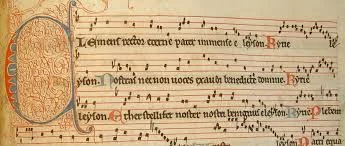 Clemens rector eterne pater immense eleyson. Kyrie
eyson. Nostras necnon voces exaudi benedicte domine. Kyrie
eleyson. Ether stelliter noster nostri benignus eleyson. Plebem